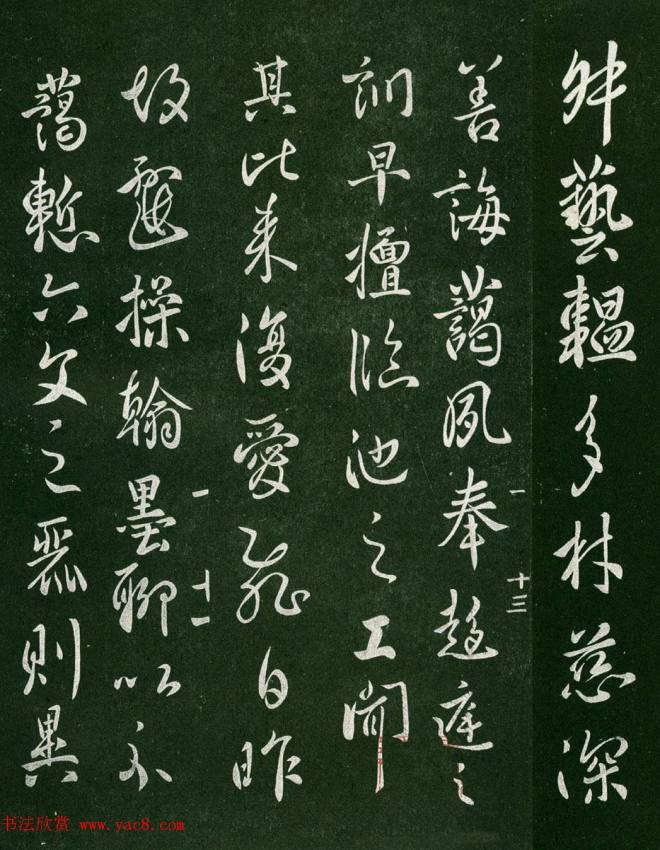 藝韞多材慈深
善誨藹夙奉趨庭之
訓早擅臨池之工聞
其比來復愛飛白昨
故操翰墨聊以示
藹慚六文之麗則異
一
十三
一
十一
书法欣赏 www.yac8.com